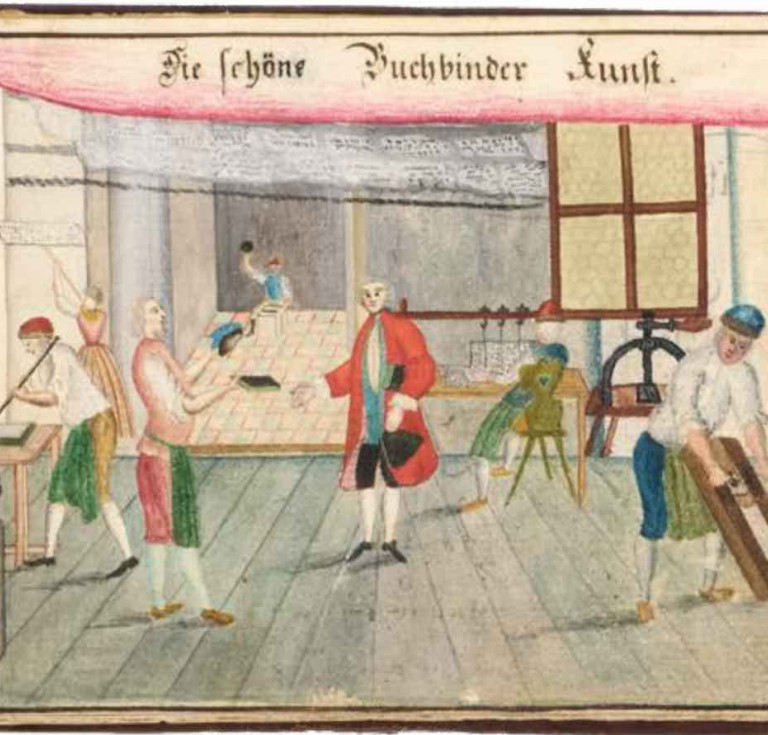 Die schöne Buchbinder Kunst.